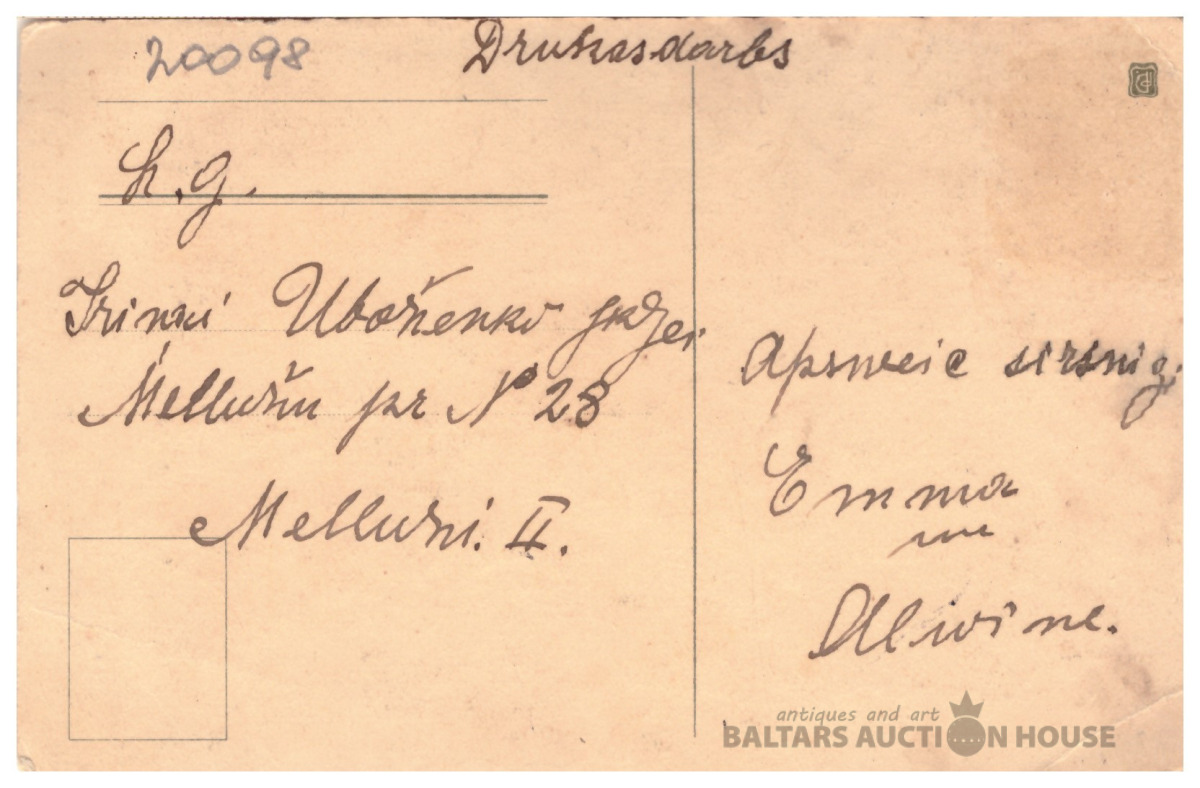 20098
Drukasdarbs
L. g.
Irinai Uboženko jkdzei
Mellužu pr № 28
Melluži. II.
Apsweic sirsnig.
Emma
un
Alwine.
antiques and art
BALTARS AUCTION HOUSE